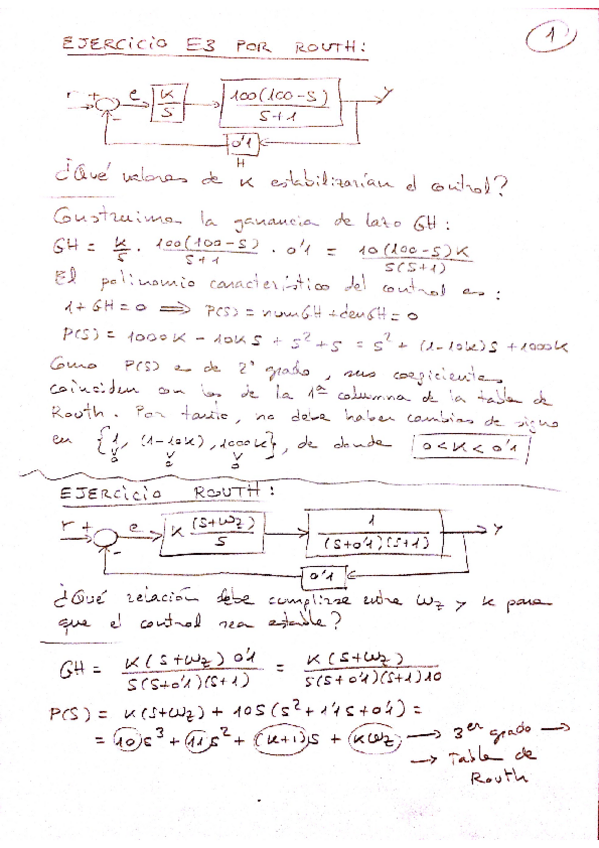 EJERCICIO E3 POR ROUTH:
1
r + e K/S 100(100-S)/(S+1) y
-
0'1
H
¿Qué valores de K estabilizarían el control?
Construimos la ganancia de lazo GH:
GH = K/S · 100(100-S)/(S+1) · 0'1 = 10(100-S)K/(S(S+1))
El polinomio característico del control es:
1+GH=0 ⟹ P(S) = numGH + denGH = 0
P(S) = 1000K - 10KS + S² + S = S² + (1-10K)S + 1000K
Como P(S) es de 2º grado, sus coeficientes
coinciden con los de la 1ª columna de la tabla de
Routh. Por tanto, no debe haber cambios de signo
en {1, (1-10K), 1000K}, de donde 0<K<0'1
EJERCICIO ROUTH:
r + e K (S+Wz)/S 1/((S+0'1)(S+1)) y
-
0'1
¿Qué relación debe cumplirse entre Wz y K para
que el control sea estable?
GH = K(S+Wz)0'1/(S(S+0'1)(S+1)) = K(S+Wz)/(S(S+0'1)(S+1)10)
P(S) = K(S+Wz) + 10S(S²+1'1S+0'1) =
= 10S³ + 11S² + (K+1)S + KWz → 3er grado →
→ Tabla de
Routh